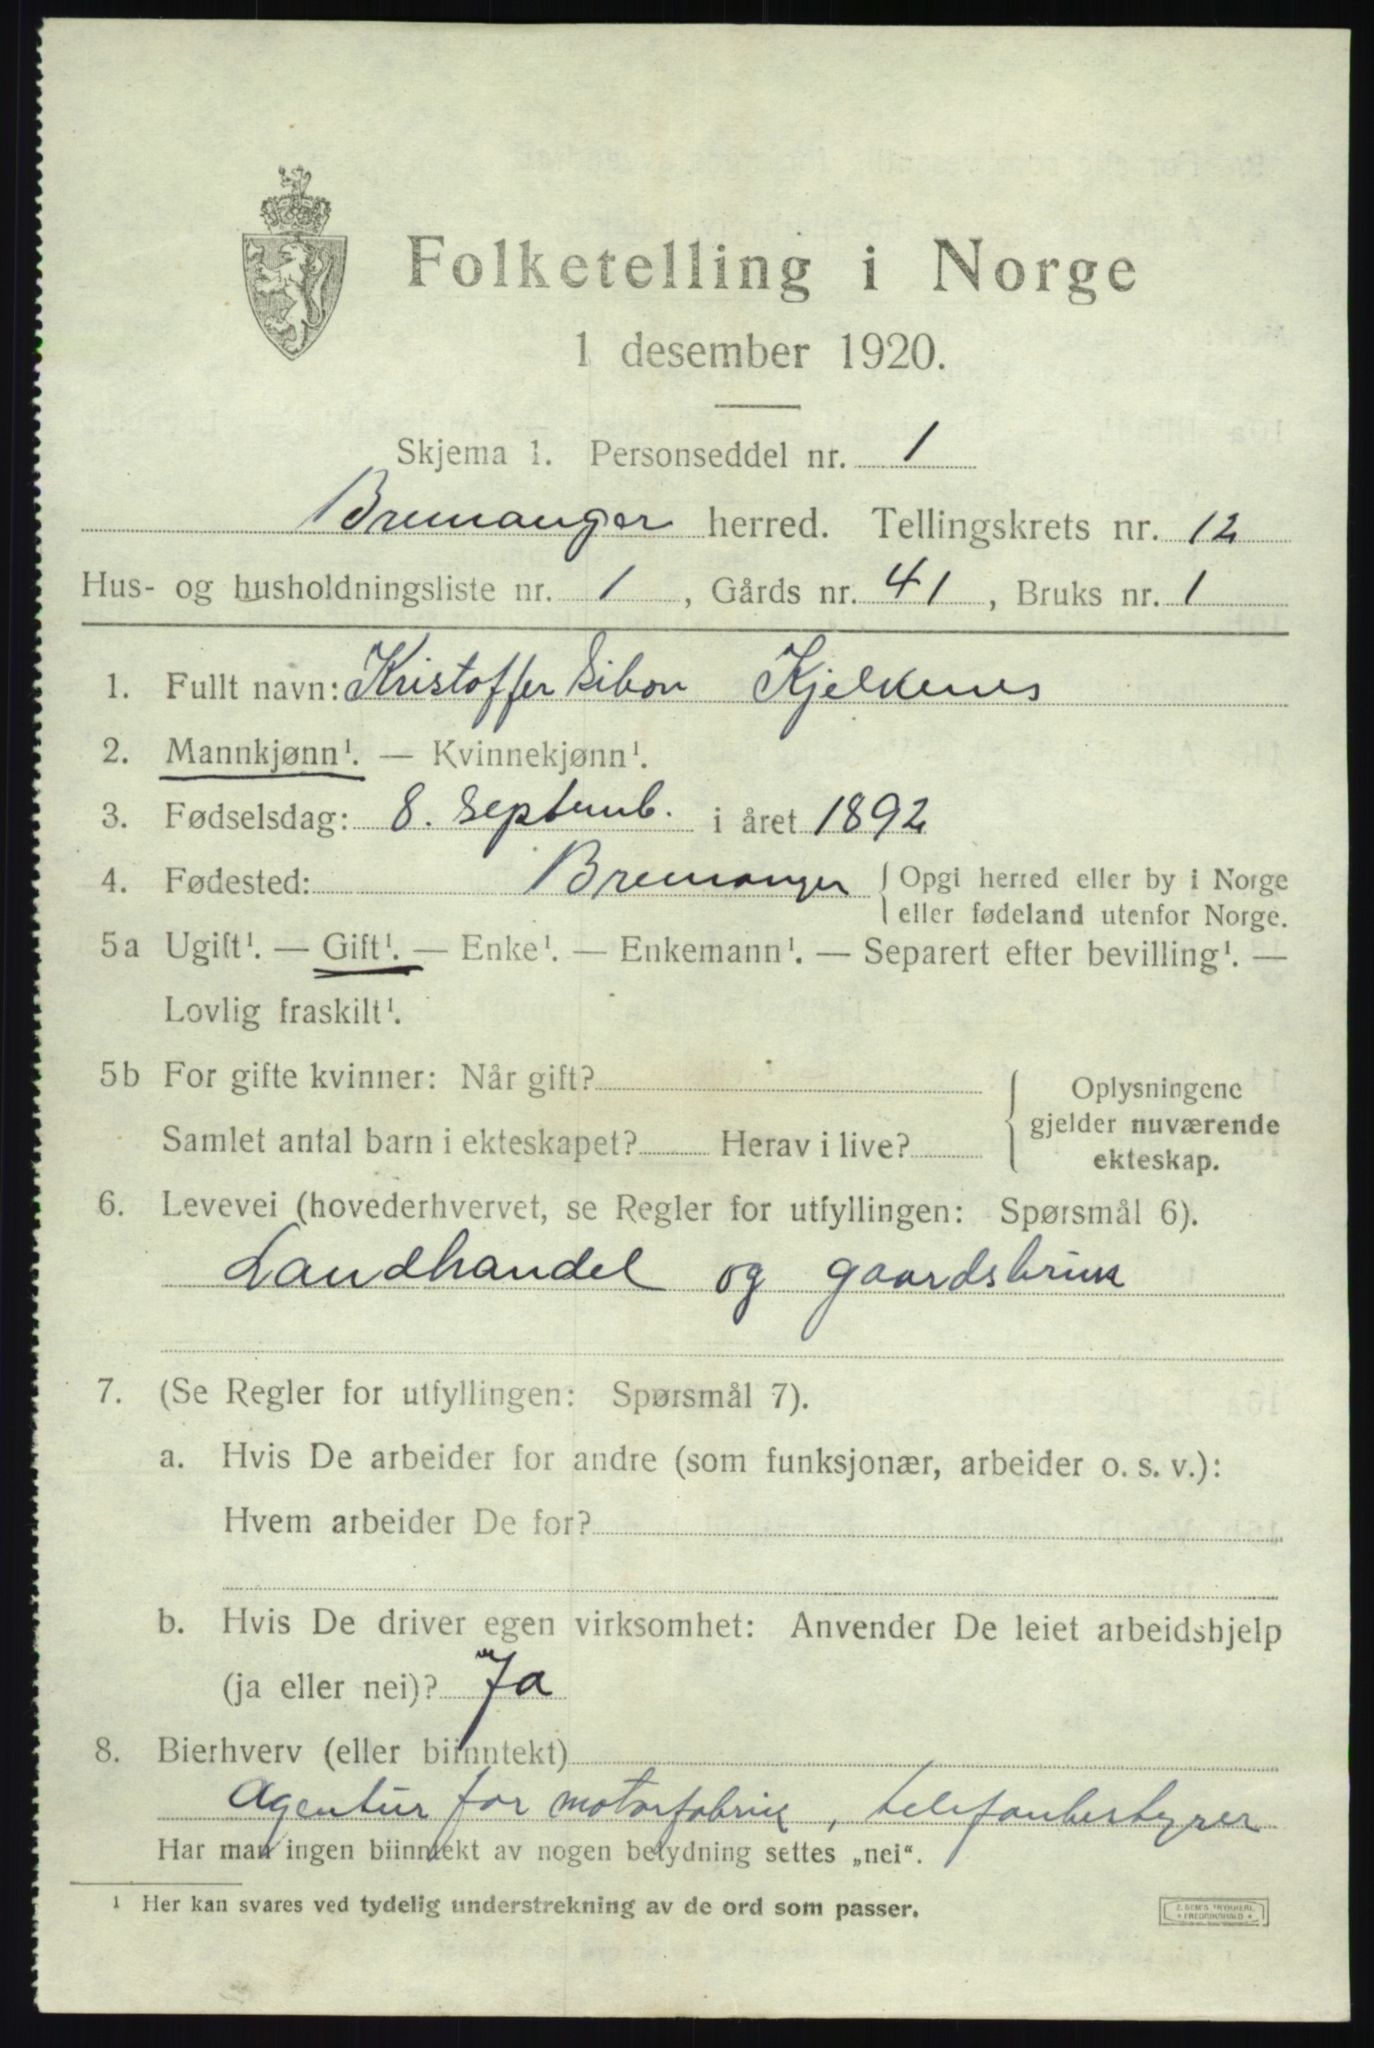 Folketelling i Norge
1 desember 1920.
Skjema 1. Personseddel nr. 1
Bremanger herred. Tellingskrets nr. 12
Hus- og husholdningsliste nr. 1, Gårds nr. 41, Bruks nr. 1
1. Fullt navn: Kristoffer Kjelkenes
2. Mannkjønn¹. — Kvinnekjønn¹.
3. Fødselsdag: 8. Septemb. i året 1892
4. Fødested: Bremanger { Opgi herred eller by i Norge
eller fødeland utenfor Norge.
5a Ugift¹. — Gift¹. — Enke¹. — Enkemann¹. — Separert efter bevilling¹. —
Lovlig fraskilt¹.
5b For gifte kvinner: Når gift?
Samlet antal barn i ekteskapet? Herav i live?
{ Oplysningene
gjelder nuværende
ekteskap.
6. Levevei (hovederhvervet, se Regler for utfyllingen: Spørsmål 6).
Landhandel og gaardsbruk
7. (Se Regler for utfyllingen: Spørsmål 7).
a. Hvis De arbeider for andre (som funksjonær, arbeider o. s. v.):
Hvem arbeider De for?
b. Hvis De driver egen virksomhet: Anvender De leiet arbeidshjelp
(ja eller nei)? Ja
8. Bierhverv (eller biinntekt)
Agentur for motorfabrik, telefonbestyrer
Har man ingen biinntekt av nogen betydning settes „nei“.
¹ Her kan svares ved tydelig understrekning av de ord som passer.